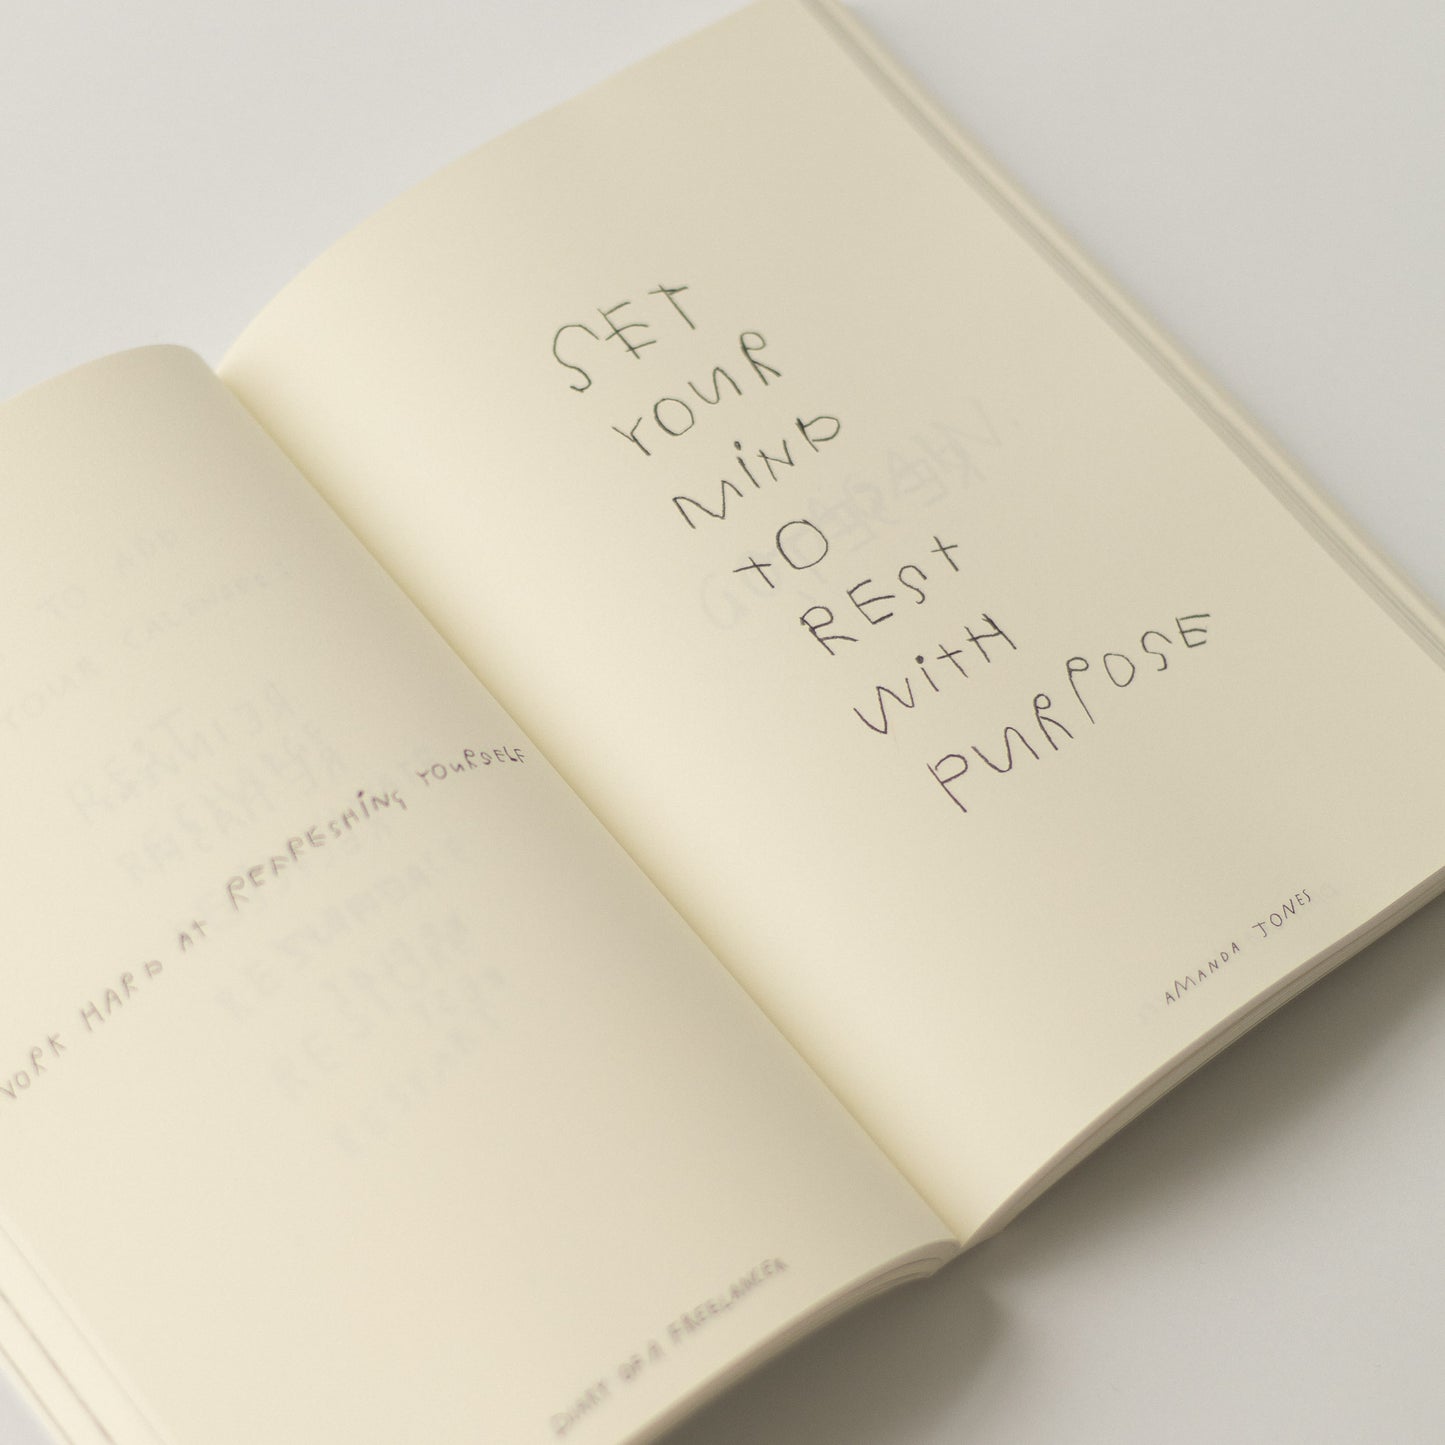 WORK HARD AT REFRESHING YOURSELF
DIARY OF A FREELANCER
SET
YOUR
MIND
TO
REST
WITH
PURPOSE
AMANDA JONES